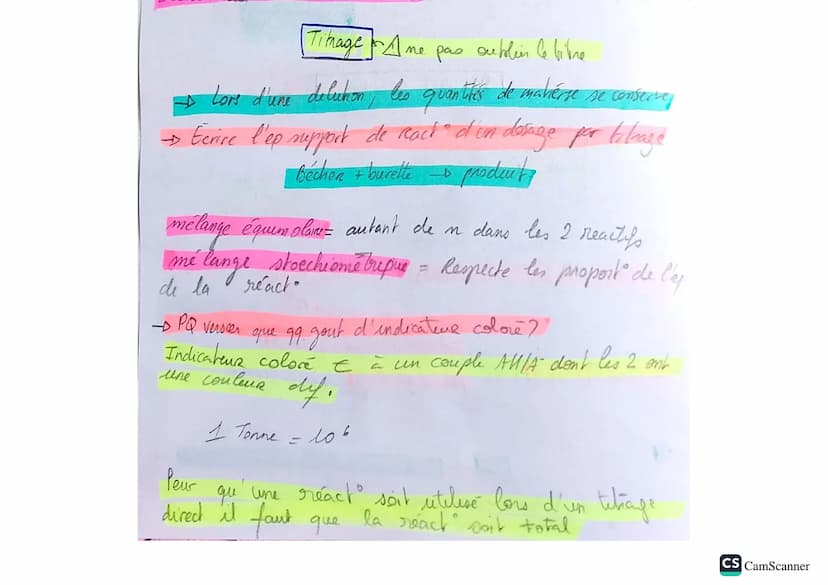 Titrage ⚠ ne pas oublier le titre
→ Lors d'une dilution, les quantités de matière se conserve
→ Ecrire l'eq support de react° d'un dosage par titrage
Bécher + burette → produit
mélange équimolaire = autant de n dans les 2 reactifs
mélange stoechiométrique = Respecte les proport° de l'eq
de la réact°
→ PQ verser que qq gout d'indicateur coloré ?
Indicateur coloré € à un couple AH/A⁻ dont les 2 ont
une couleur dif.
1 Tonne = 10⁶
Pour qu'une réact° soit utilisé lors d'un titrage
direct il faut que la réact° soit total
CS CamScanner